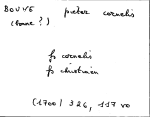 BOUVE pieter cornelis
(bouve?)
fs cornelis
fs christiaen
(1700) 326, 117 vo